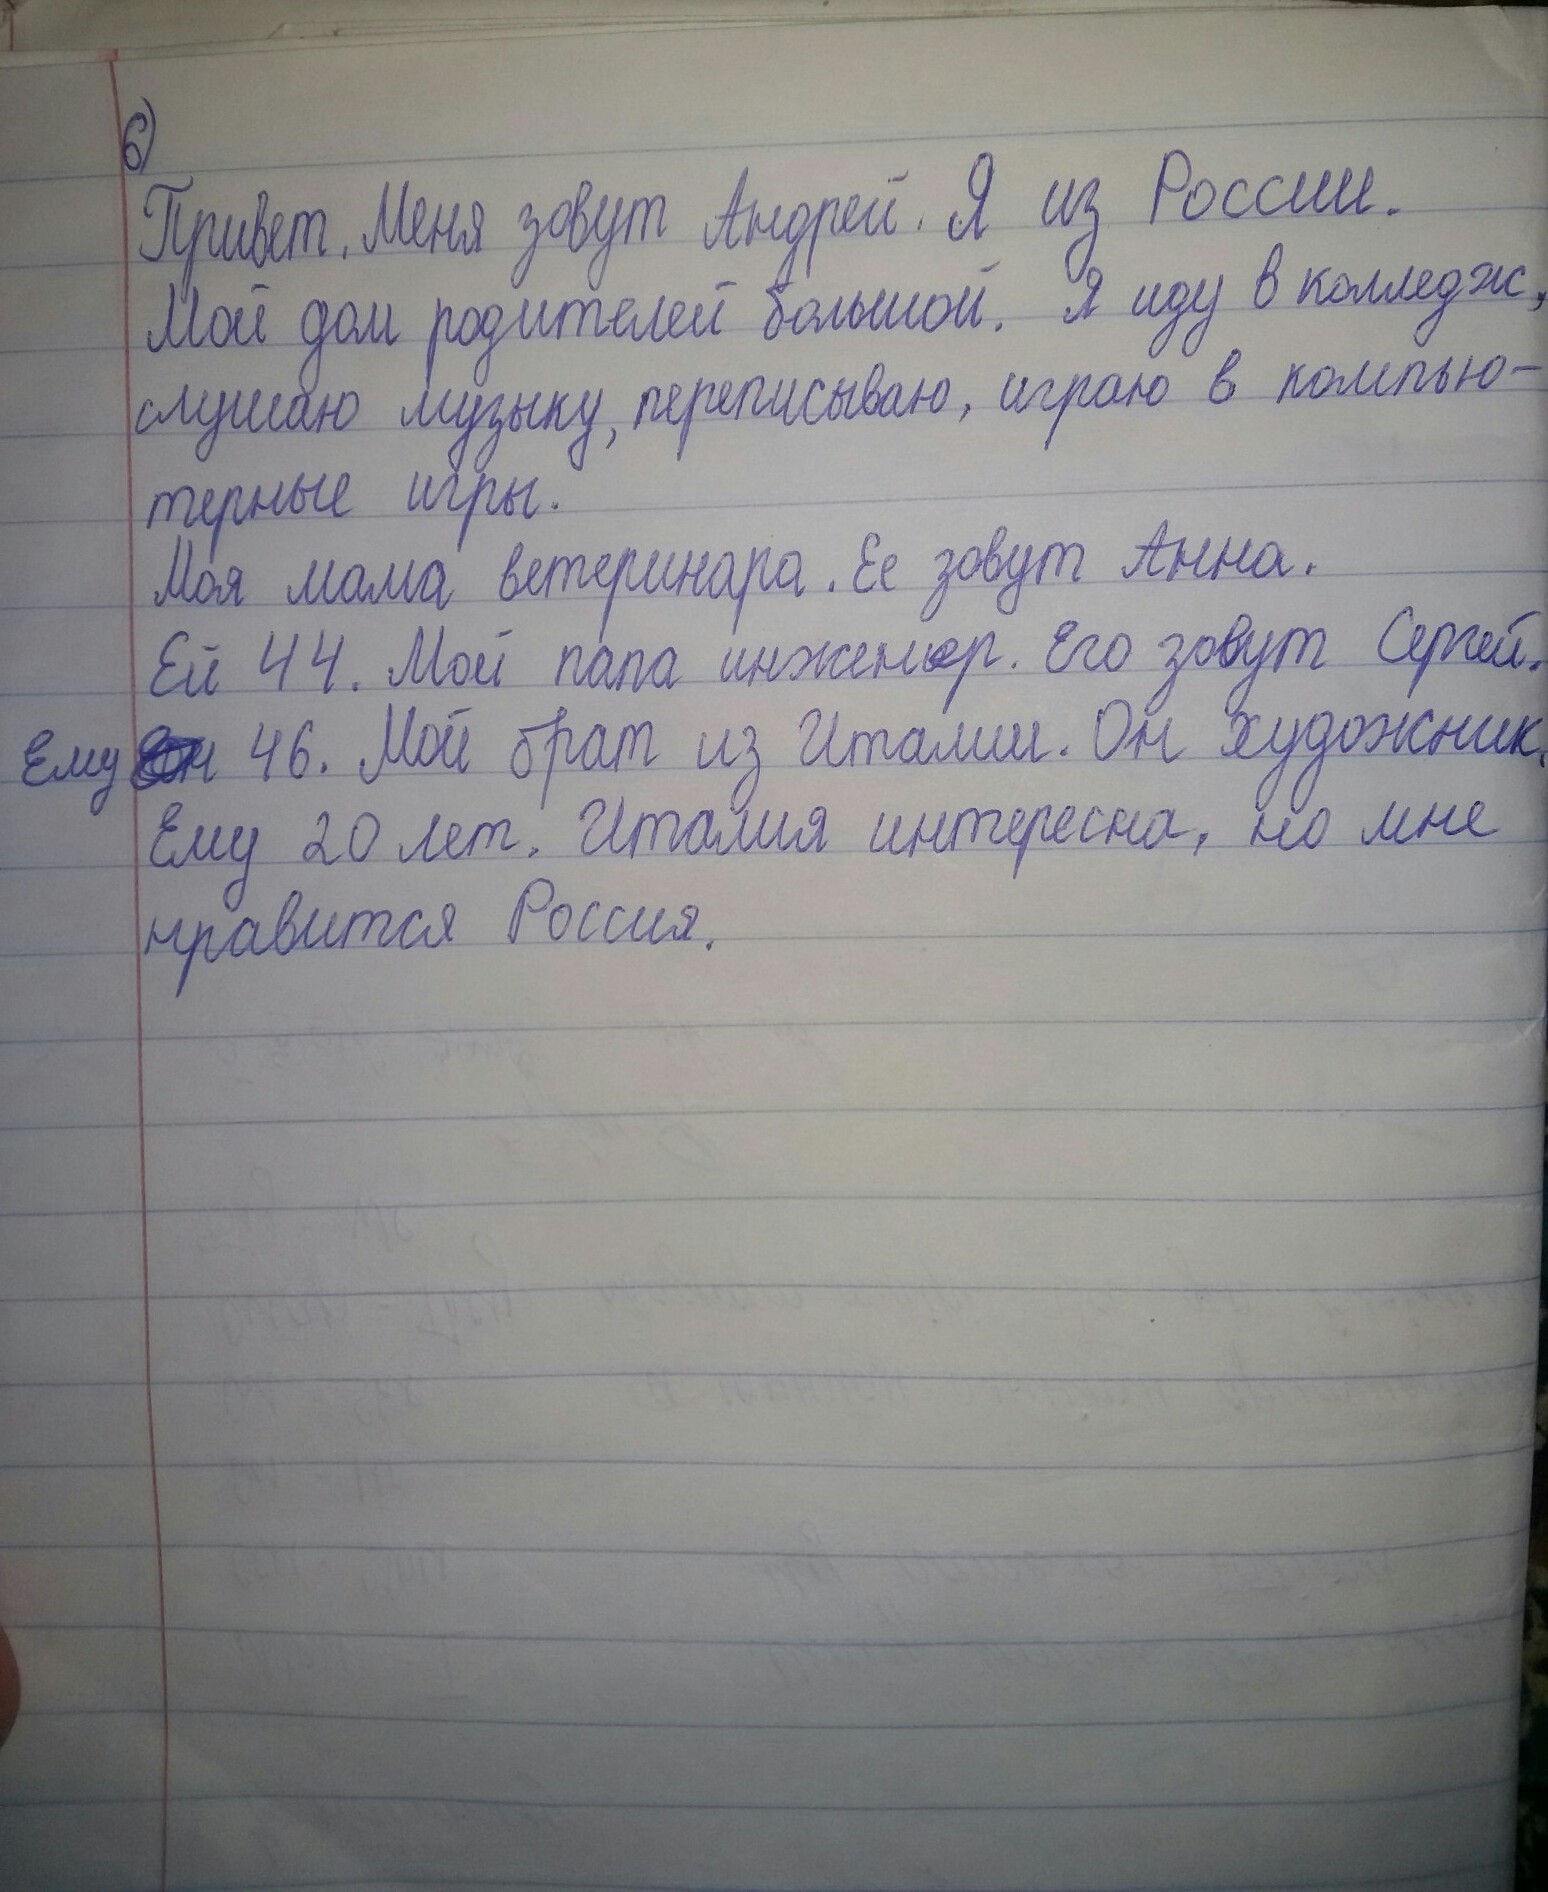 6)
Привет. Меня зовут Андрей. Я из России.
Мой дом родителей большой. Я иду в колледж,
слушаю музыку, переписываю, играю в компью-
терные игры.
Моя мама ветеринара. Ее зовут Анна.
Ей 44. Мой папа инженер. Его зовут Сергей.
Ему 46. Мой брат из Италии. Он художник.
Ему 20 лет. Италия интересна, но мне
нравится Россия.